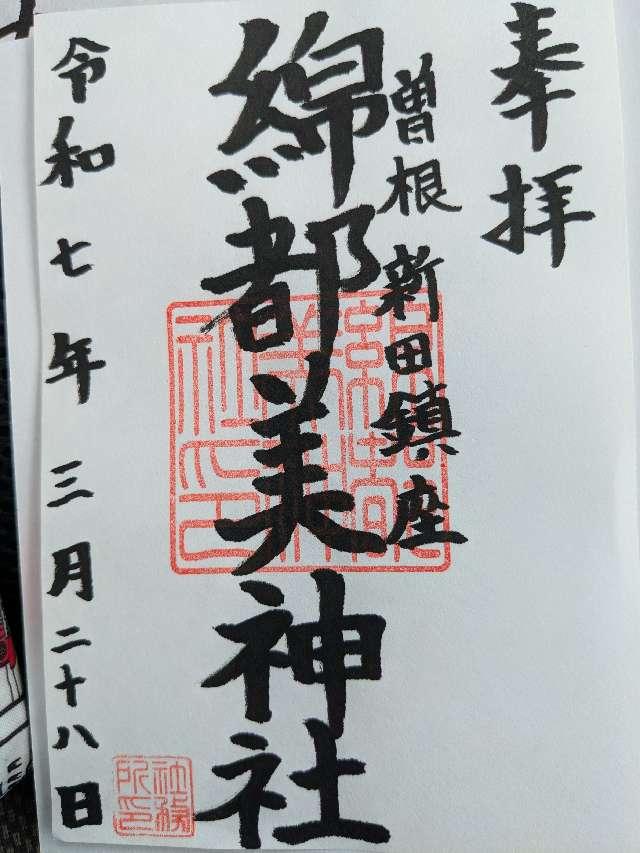 奉拝
曽根新田鎮座
綿都美神社
令和七年三月二十八日
社務所印